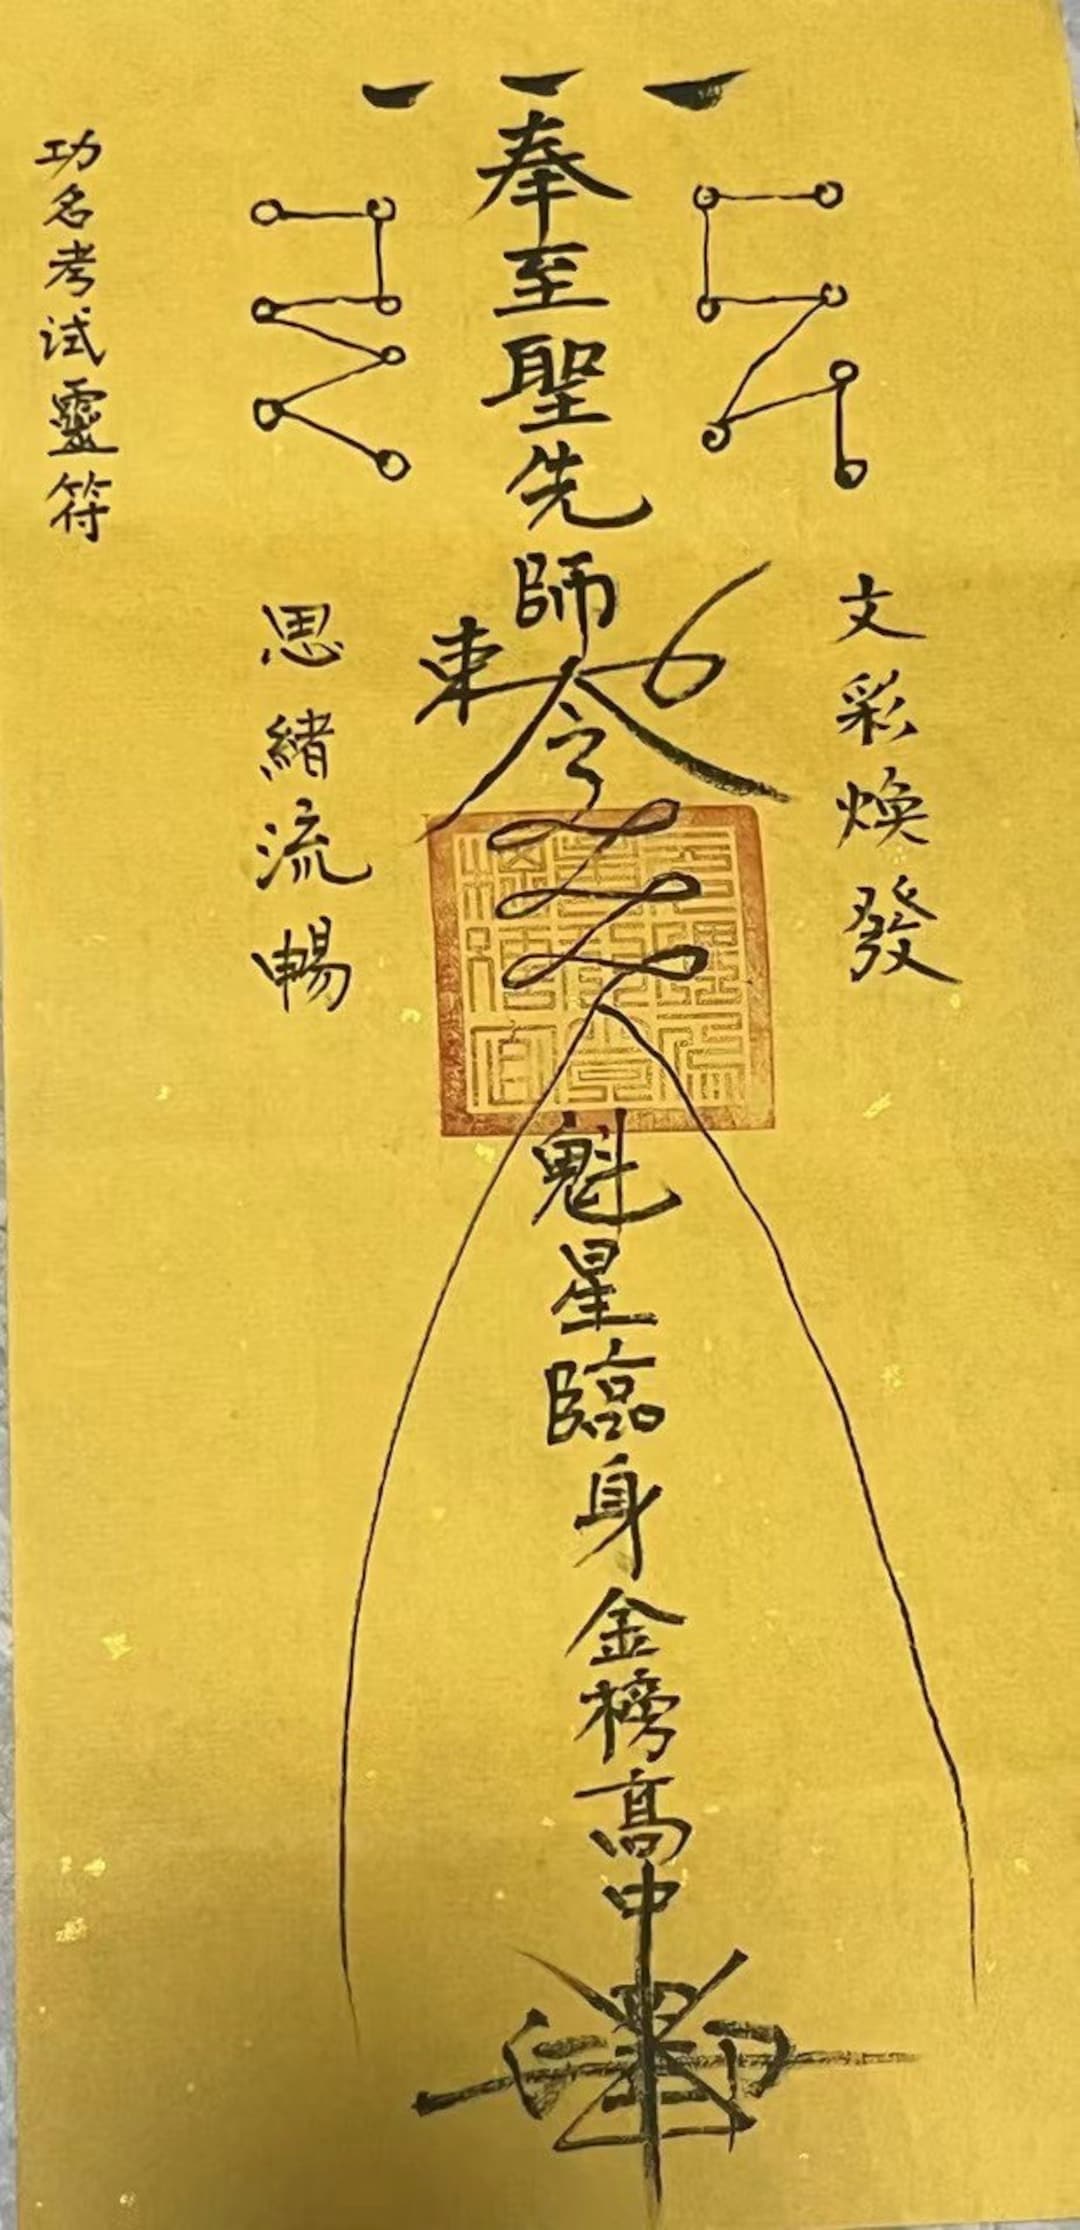 功名考試靈符
奉至聖先師
東
令
文彩煥發
思緒流暢
魁星臨身金榜高中